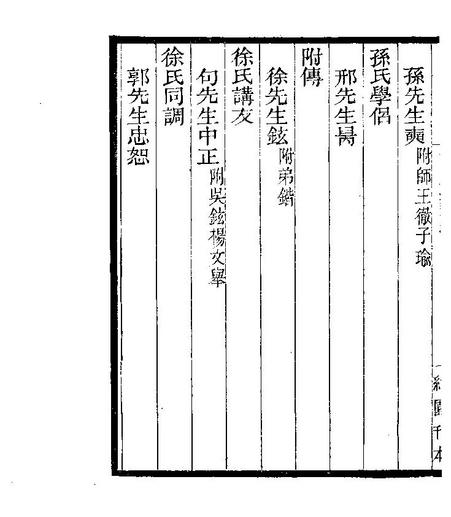 孫先生奭附師王徹子瑜
孫氏學侶
邢先生昺
附傳
徐先生鉉附弟鍇
徐氏講友
句先生中正附吳鉉楊文舉
徐氏同調
郭先生忠恕